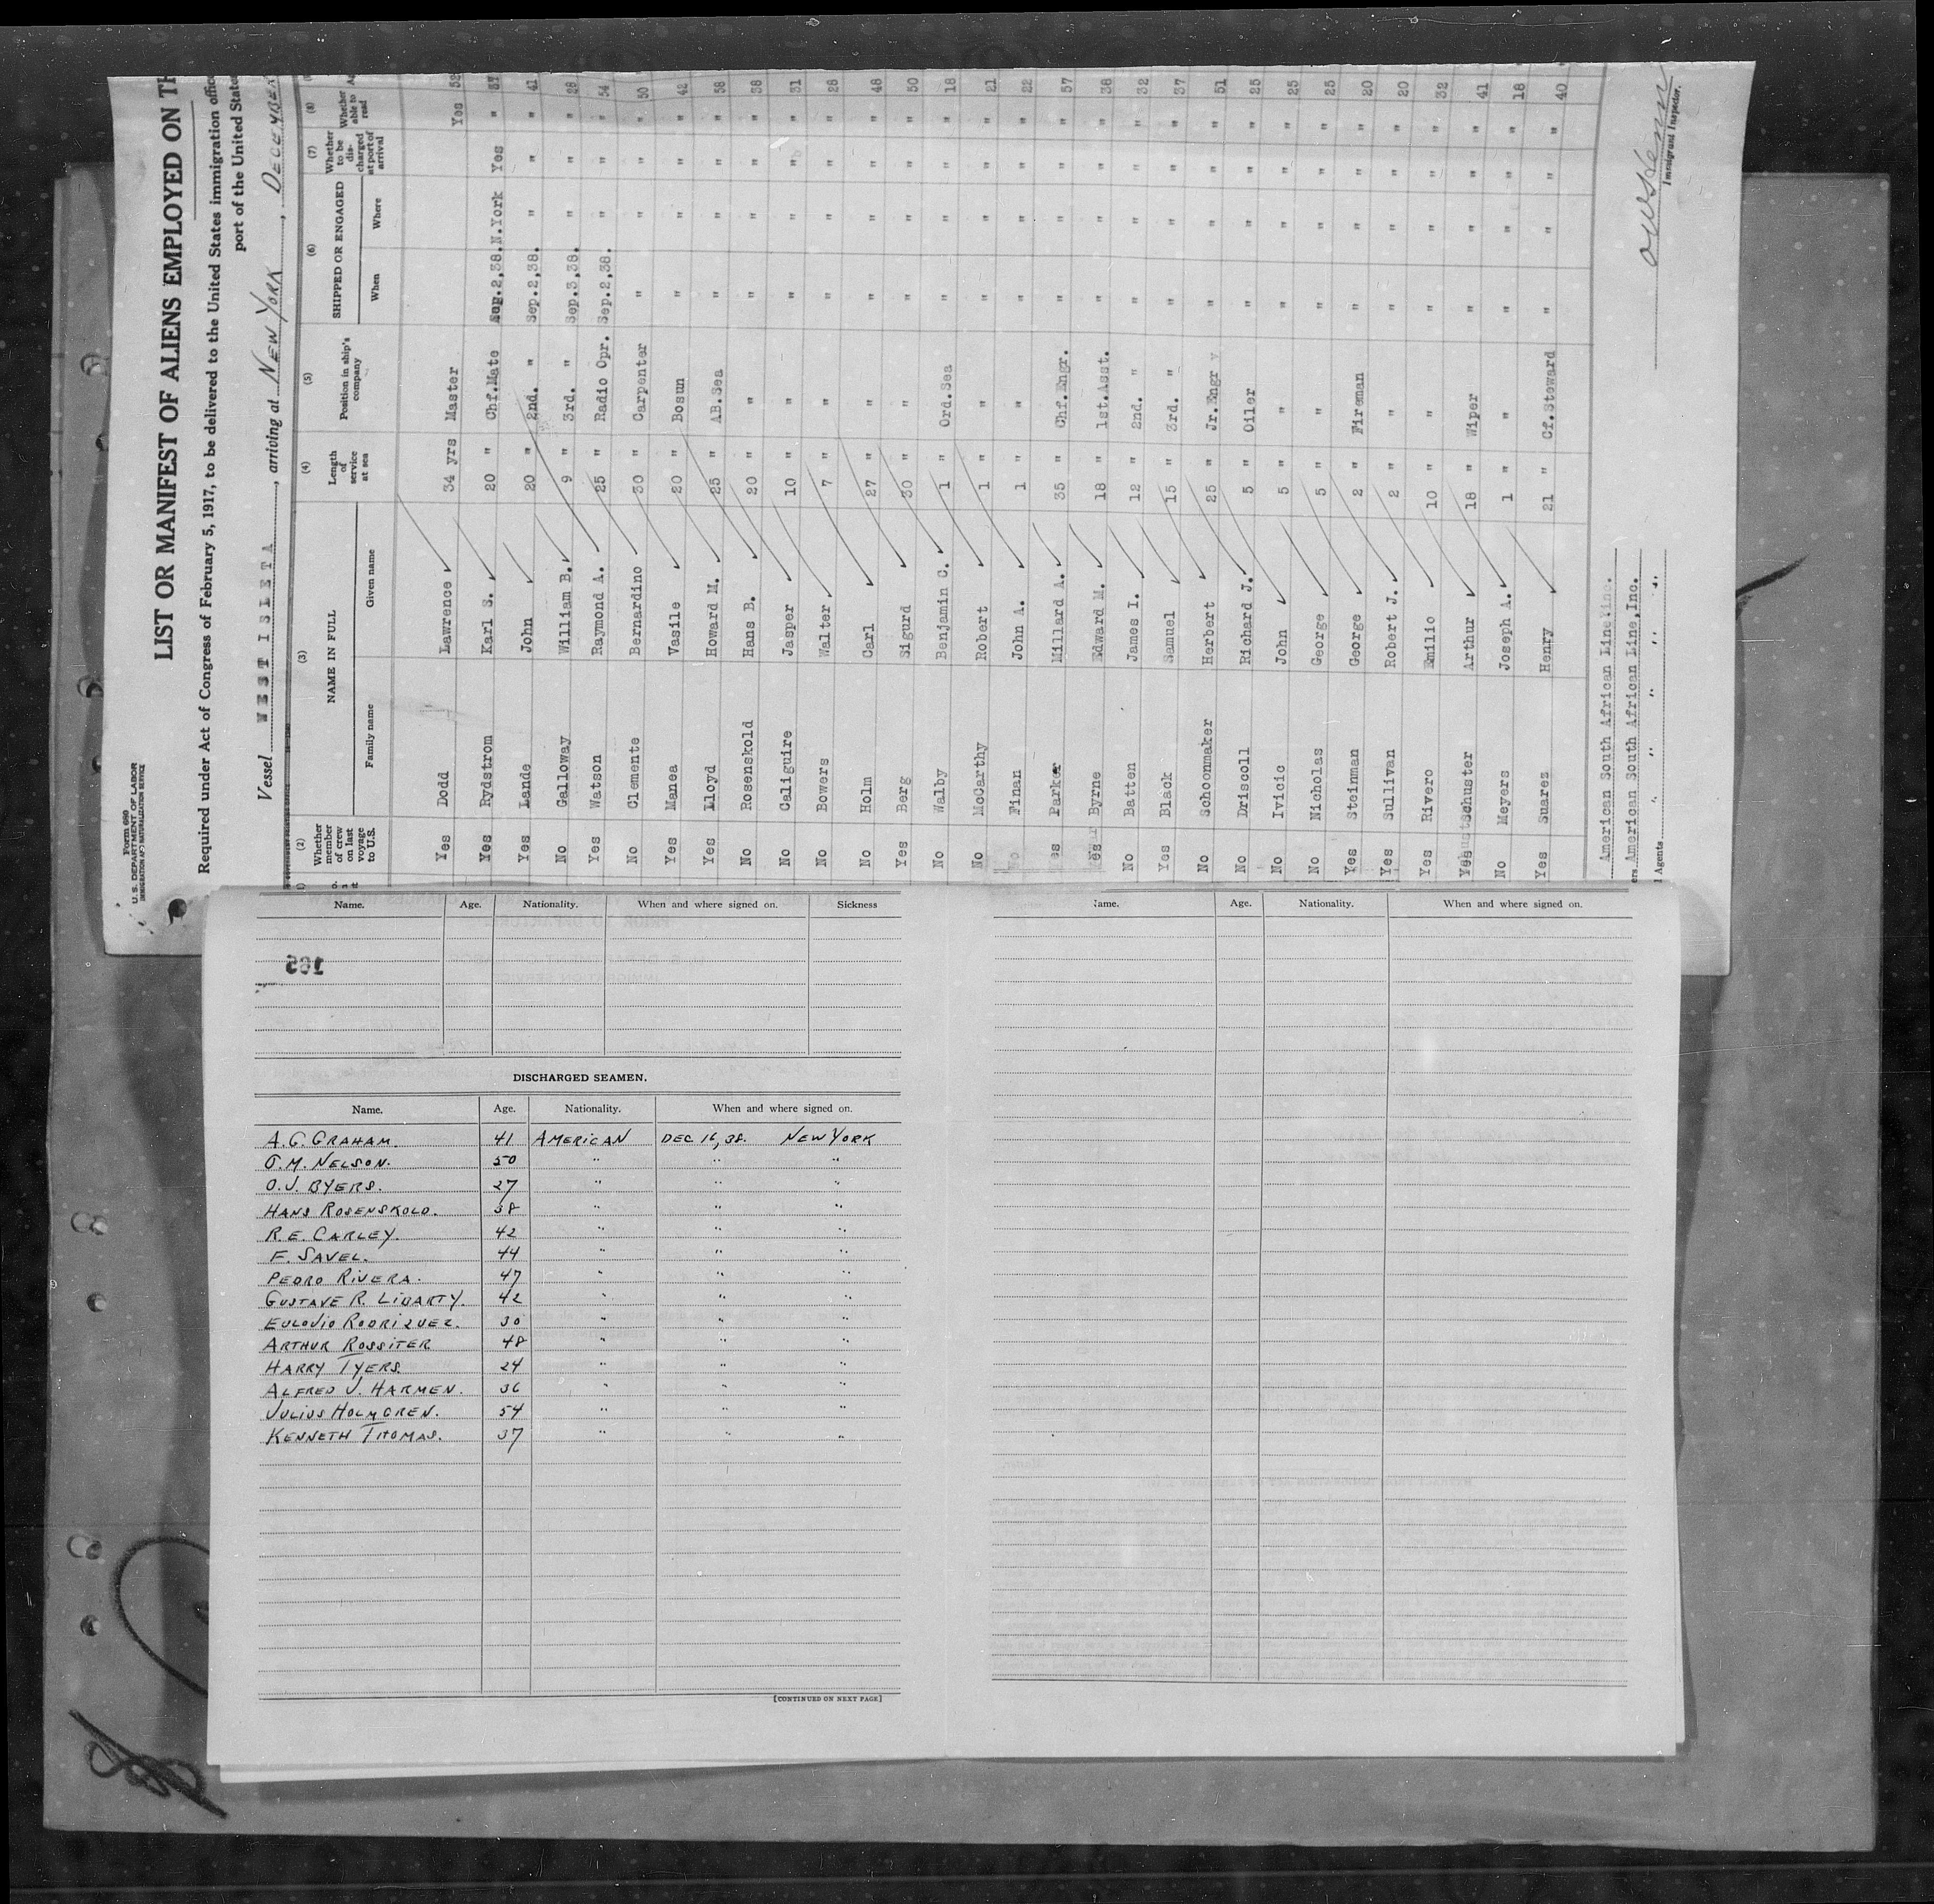 Form 680
U. S. DEPARTMENT OF LABOR
IMMIGRATION AND NATURALIZATION SERVICE
LIST OR MANIFEST OF ALIENS EMPLOYED ON TH
Required under Act of Congress of February 5, 1917, to be delivered to the United States immigration offic
port of the United State
Vessel WEST ISLETA, arriving at NEW YORK, DECEMBER
(2) (3) (4) (5) (6) (7) (8)
Whether member of crew on last voyage to U.S. NAME IN FULL Family name Given name Length of service at sea Position in ship's company SHIPPED OR ENGAGED When Where Whether to be discharged at port of arrival Whether able to read
Yes Dodd Lawrence 34 yrs Master Yes 52
Yes Rydstrom Karl S. 20 " Chf.Mate Sep.2,38. N.York Yes " 37
Yes Lande John 20 " 2nd. " Sep.2,38. " " " 41
No Galloway William B. 9 " 3rd. " Sep.3,38. " " " 28
Yes Watson Raymond A. 25 " Radio Opr. Sep.2,38. " " " 54
No Clemente Bernardino 30 " Carpenter " " " " 50
Yes Manea Vasile 20 " Bosun " " " " 42
Yes Lloyd Howard M. 25 " AB.Sea " " " " 58
No Rosenskold Hans B. 20 " " " " " " 38
No Caliguire Jasper 10 " " " " " " 31
No Bowers Walter 7 " " " " " " 28
No Holm Carl 27 " " " " " " 48
Yes Berg Sigurd 30 " " " " " " 50
No Walby Benjamin C. 1 " Ord.Sea " " " " 18
No McCarthy Robert 1 " " " " " " 21
No Finan John A. 1 " " " " " " 22
Yes Parker Millard A. 35 " Chf.Engr. " " " " 57
Yes Byrne Edward M. 18 " 1st.Asst. " " " " 38
No Batten James I. 12 " 2nd. " " " " " 32
Yes Black Samuel 15 " 3rd. " " " " " 37
No Schoonmaker Herbert 25 " Jr.Engr " " " " 51
No Driscoll Richard J. 5 " Oiler " " " " 25
No Ivicic John 5 " " " " " " 25
No Nicholas George 5 " " " " " " 25
Yes Steinman George 2 " Fireman " " " " 20
Yes Sullivan Robert J. 2 " " " " " " 20
Yes Rivero Emilio 10 " " " " " " 32
Yes Schuster Arthur 18 " Wiper " " " " 41
No Meyers Joseph A. 1 " " " " " " 18
Yes Suarez Henry 21 " Cf.Steward " " " " 40
American South African Line Inc.
ers American South African Line, Inc.
l Agents " " " "
Immigrant Inspector.
Name. Age. Nationality. When and where signed on. Sickness
Name. Age. Nationality. When and where signed on.
DISCHARGED SEAMEN.
Name. Age. Nationality. When and where signed on.
A. G. GRAHAM. 41 AMERICAN DEC 16, 38. NEW YORK
O. M. NELSON. 50 " " "
O. J. BYERS. 27 " " "
HANS ROSENSKOLD. 38 " " "
R. E. CARLEY. 42 " " "
F. SAVEL. 44 " " "
PEDRO RIVERA. 47 " " "
GUSTAVE R. LIBARTY. 42 " " "
EULOVIO RODRIZUEZ. 30 " " "
ARTHUR ROSSITER 48 " " "
HARRY TYERS. 24 " " "
ALFRED J. HARMEN. 36 " " "
JULIUS HOLMGREN. 54 " " "
KENNETH THOMAS. 37 " " "
[CONTINUED ON NEXT PAGE]